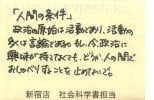 「人間の条件」
政治の原始は活動とあり、活動の
多くは言論とあるもし、今、政治に
興味が持てなくても、どうか人の間で
おしゃべりすることを止めないでください。
新宿店 社会科学書担当